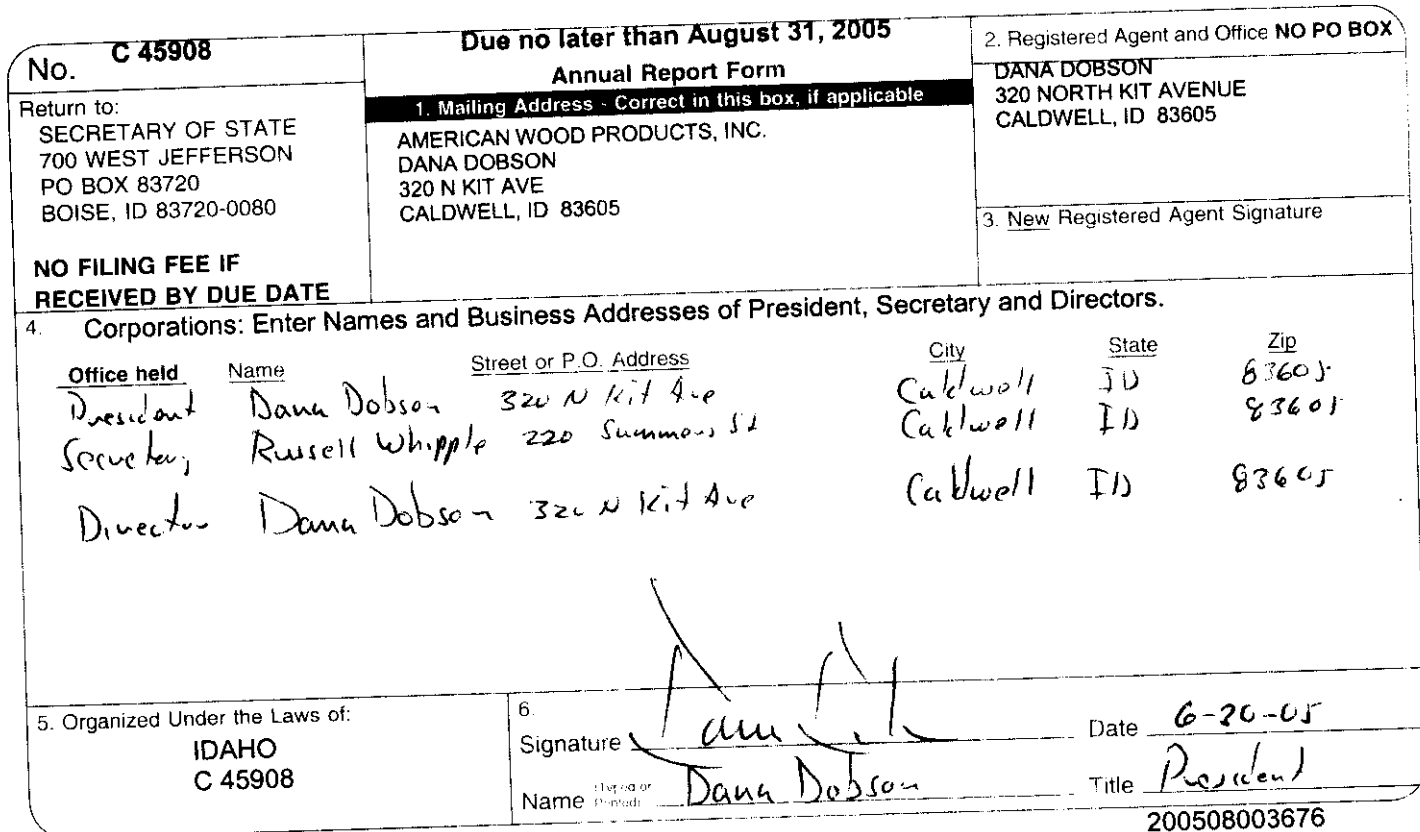 No. C 45908
Return to:
SECRETARY OF STATE
700 WEST JEFFERSON
PO BOX 83720
BOISE, ID 83720-0080
NO FILING FEE IF
RECEIVED BY DUE DATE
Due no later than August 31, 2005
Annual Report Form
1. Mailing Address - Correct in this box, if applicable
AMERICAN WOOD PRODUCTS, INC.
DANA DOBSON
320 N KIT AVE
CALDWELL, ID 83605
2. Registered Agent and Office NO PO BOX
DANA DOBSON
320 NORTH KIT AVENUE
CALDWELL, ID 83605
3. New Registered Agent Signature
4. Corporations: Enter Names and Business Addresses of President, Secretary and Directors.
Office held Name Street or P.O. Address City State Zip
President Dana Dobson 320 N Kit Ave Caldwell ID 83605
Secretary Russell Whipple 220 St Caldwell ID 83605
Director Dana Dobson 320 N Kit Ave Caldwell ID 83605
5. Organized Under the Laws of:
IDAHO
C 45908
6.
Signature Date
Name (Typed or Printed) Dana Dobson Title President
200508003676